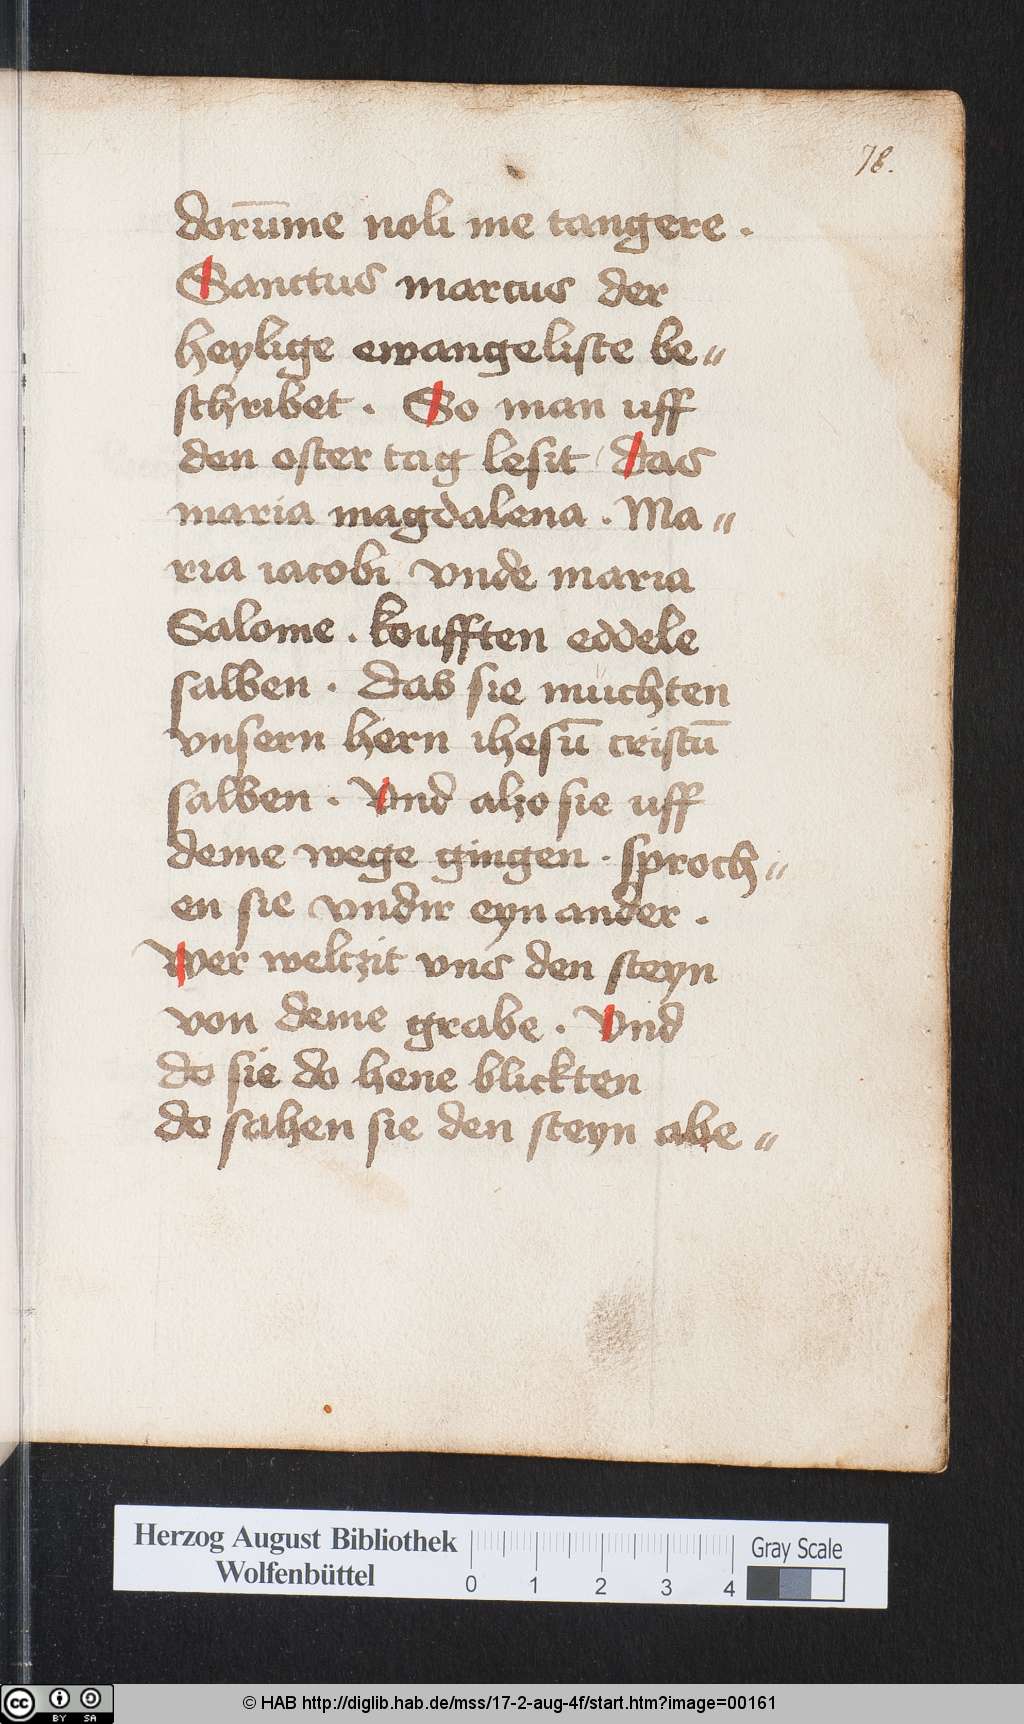 78.
dorūme noli me tangere .
Sanctus marcus der
heylige ewangeliste be〃
schribet . So man uff
den oster tag lesit das
maria magdalena . Ma〃
ria iacobi vnde maria
Salome . koufften eddele
salben . das sie muchten
vnsern hern ihesū cristū
salben . Vnd alzo sie uff
deme wege gingen . sproch〃
en sie vndir eyn ander .
Wer weltzit vns den steyn
von deme grabe . Vnd
do sie do hene blickten
do sahen sie den steyn abe〃
Herzog August Bibliothek
Wolfenbüttel
0 1 2 3 4
Gray Scale
cc BY SA
© HAB http://diglib.hab.de/mss/17-2-aug-4f/start.htm?image=00161